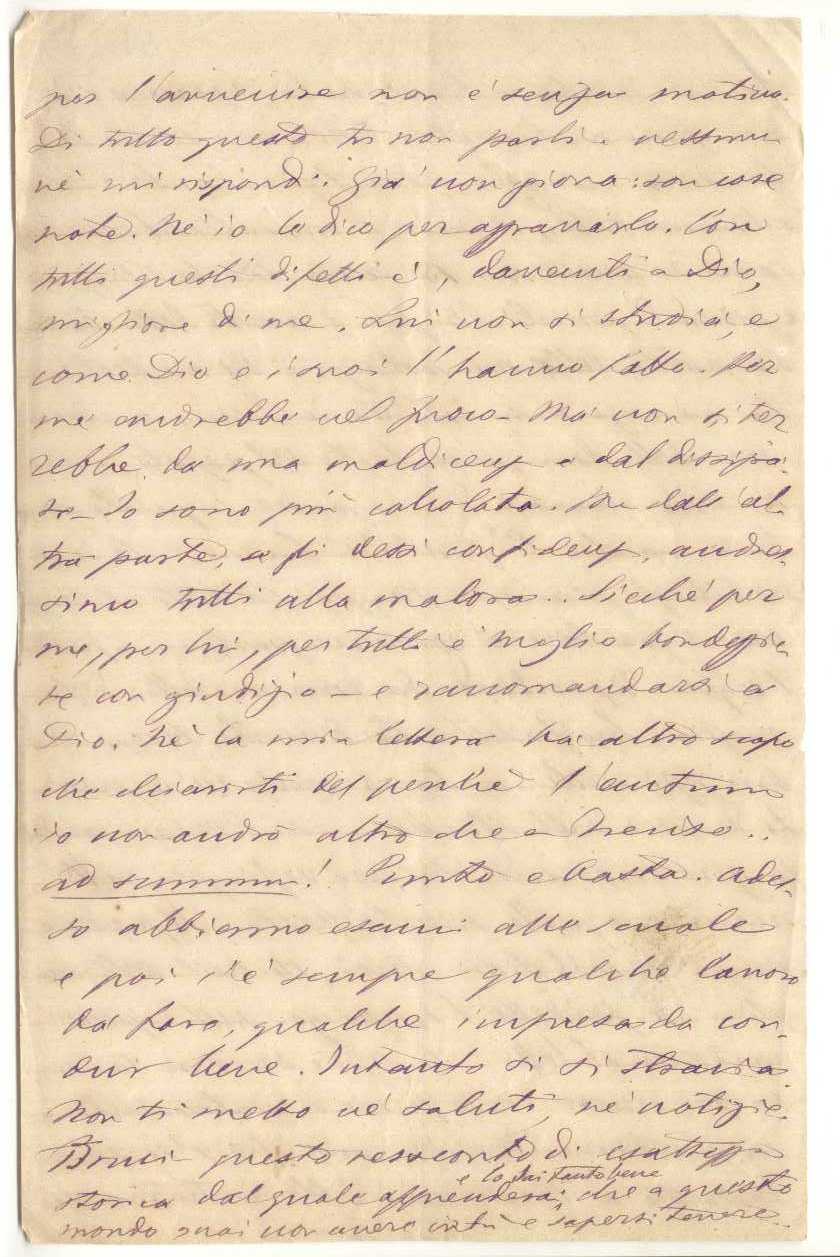 per l'avvenire non è senza motivo.
Di tutto questo tu non parli a nessuno
nè mi rispondi. Già non giova: son cose
note. Nè io lo dico per aggravarlo. Con
tutti questi difetti è, davanti a Dio,
migliore di me. Lui non si studia, è
come Dio e i suoi l'hanno fatto. Per
me andrebbe nel fuoco - Ma non si ter
rebbe da una maldicenza e dal dissipa-
re - Io sono più calcolata. Ma dall'al-
tra parte, se gli dessi confidenza, andres-
simo tutti alla malora.. Sicché per
me, per lui, per tutti è meglio bordeggia-
re con giudizio - e raccomandarsi a
Dio. Nè la mia lettera ha altro scopo
che chiarirti del perchè l'autunno
io non andrò altro che a Firenze..
ad summum! Punto e basta. Ades-
so abbiamo esami alle scuole
e poi c'è sempre qualche lavoro
da fare, qualche impresa da con-
dur bene. Intanto si si strania.
Non ti metto nè saluti, nè notizie.
Bruci questo resoconto di esattezza
storica dal quale apprenderai e lo sai tanto bene che a questo
mondo guai non avere virtù e sapersi tenere..